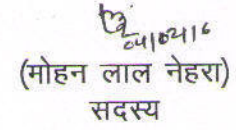 04/02/16
(मोहन लाल नेहरा)
सदस्य